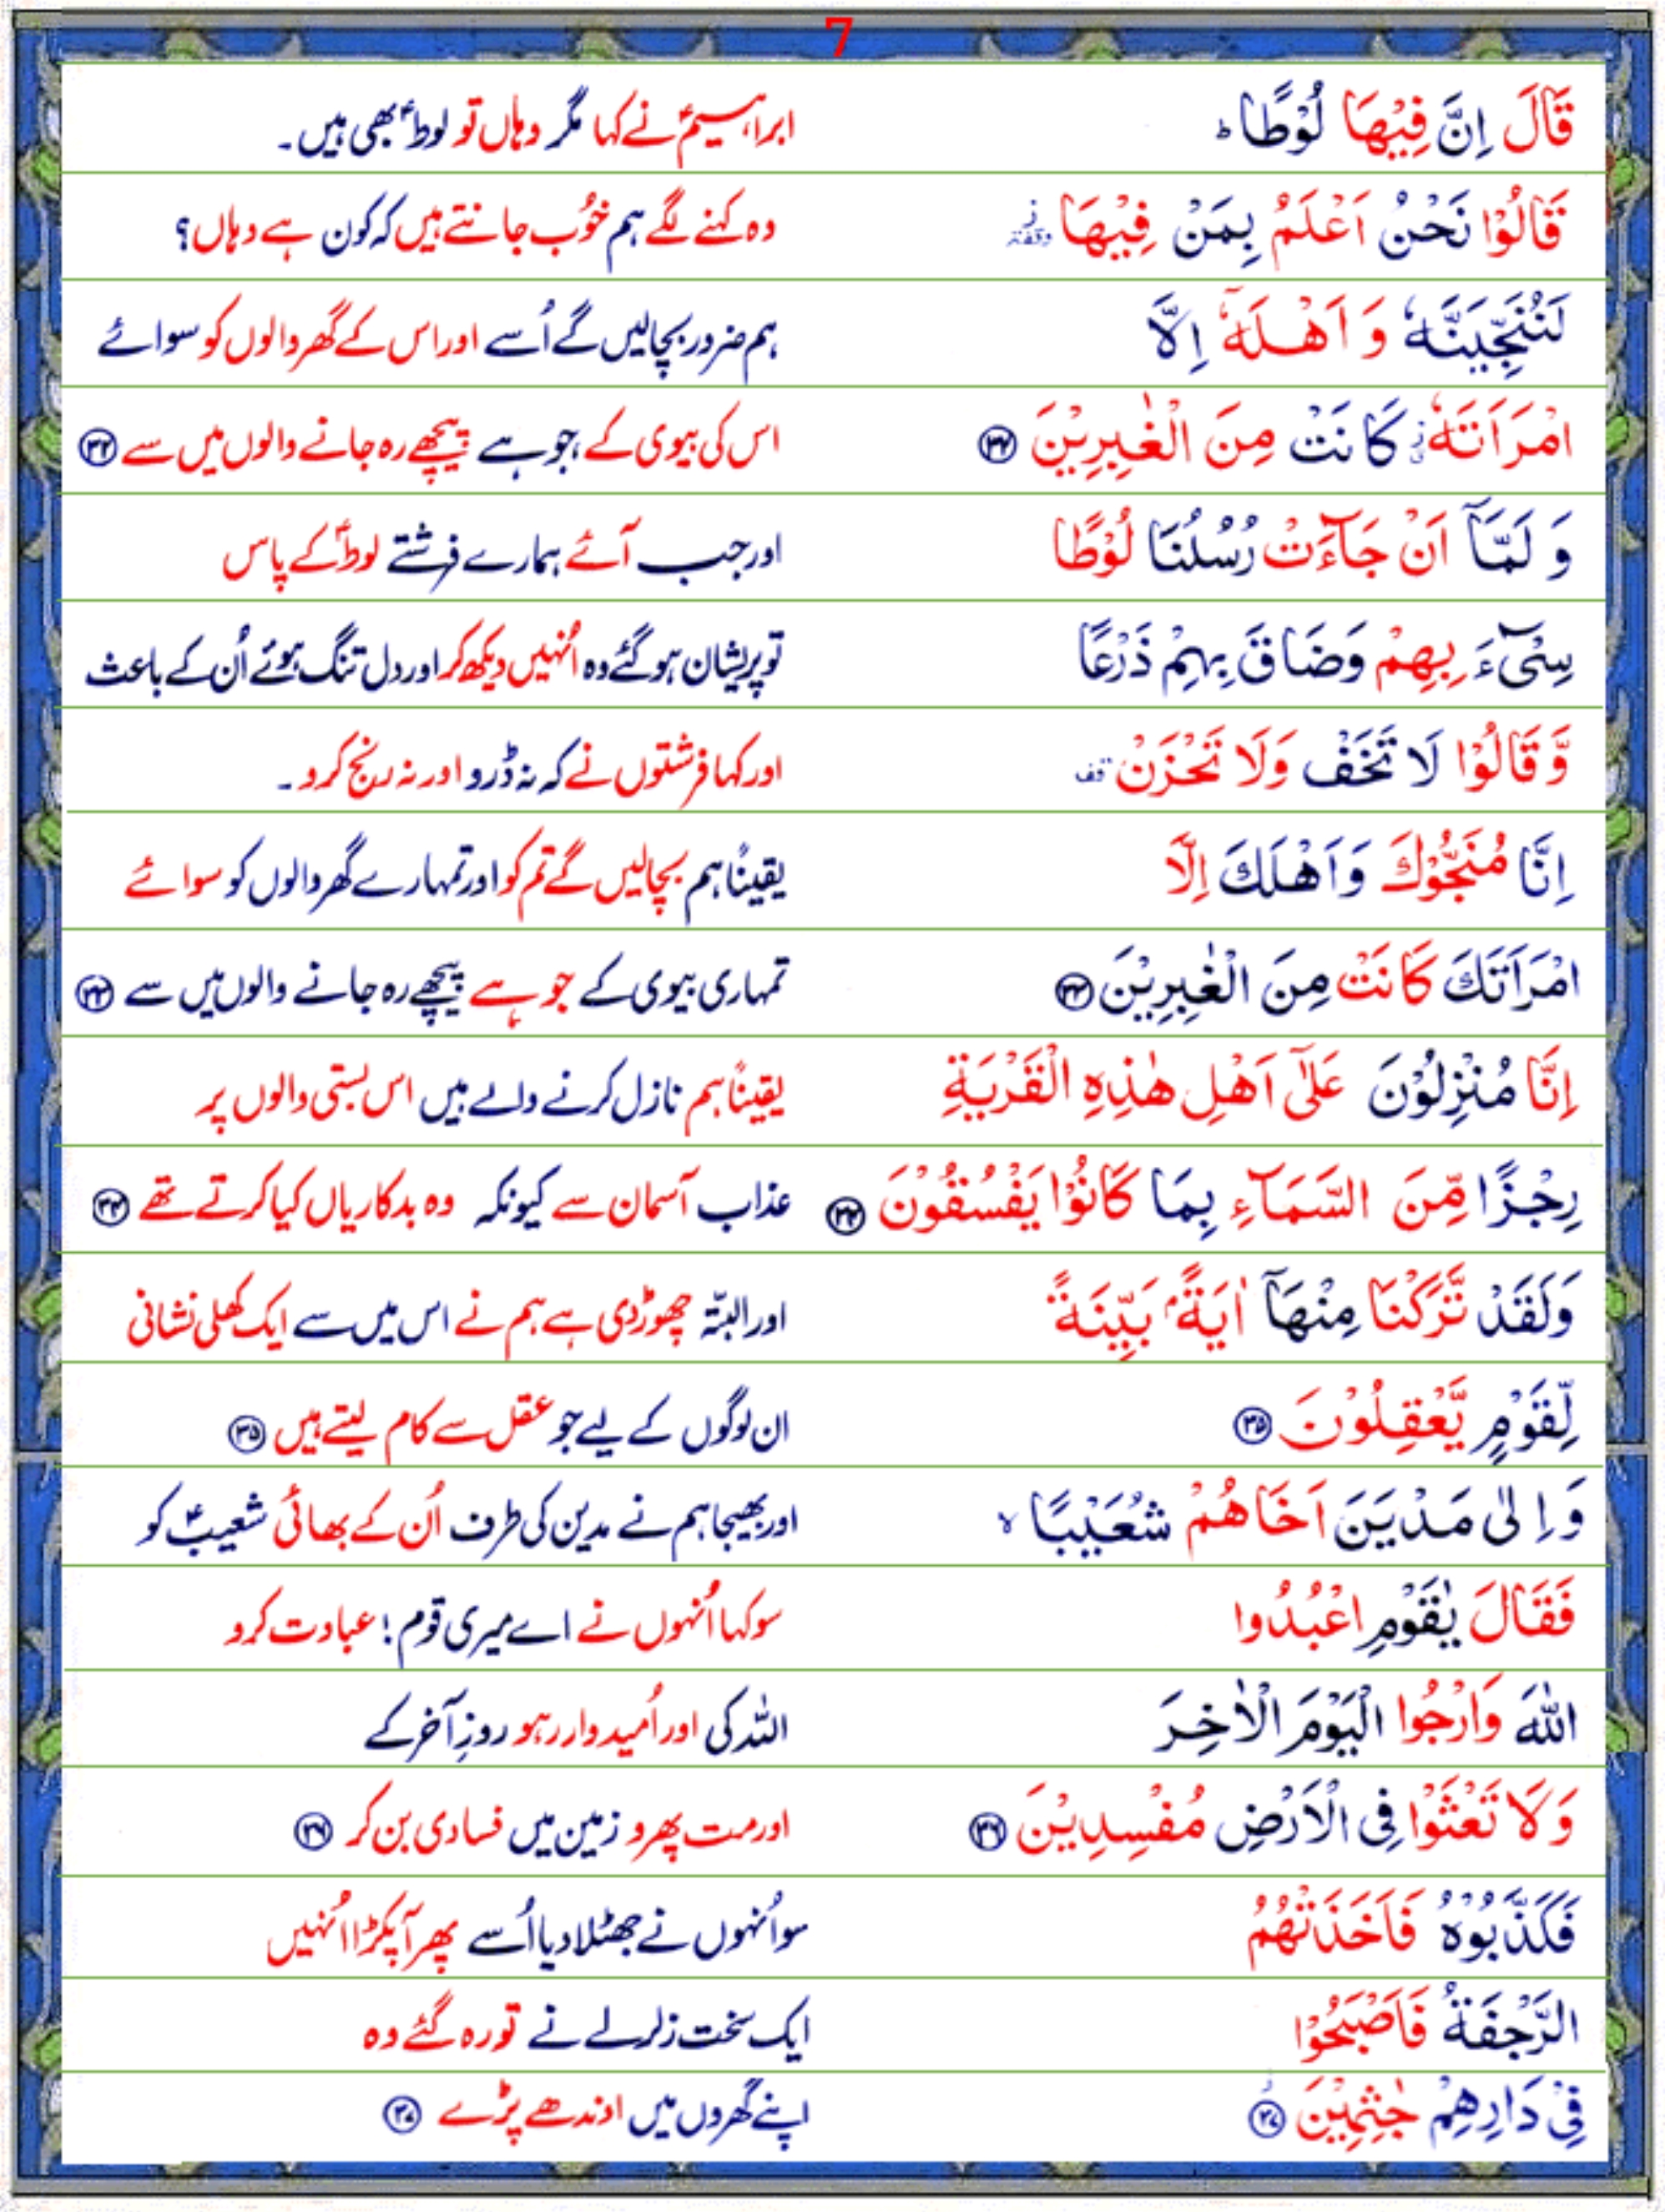 7
قَالَ اِنَّ فِيْهَا لُوْطًا ؕ ابراہیمؑ نے کہا مگر وہاں تو لوطؑ بھی ہیں۔
قَالُوْا نَحْنُ اَعْلَمُ بِمَنْ فِيْهَا ٘ وقفۃ وہ کہنے لگے ہم خُوب جانتے ہیں کہ کون ہے وہاں؟
لَنُنَجِّيَنَّهٗ وَ اَهْلَهٗۤ اِلَّا ہم ضرور بچالیں گے اُسے اور اس کے گھر والوں کو سوائے
امْرَاَتَهٗ ٘ كَانَتْ مِنَ الْغٰبِرِيْنَ ۳۲ اس کی بیوی کے ،جو ہے پیچھے رہ جانے والوں میں سے ۳۲
وَ لَمَّاۤ اَنْ جَآءَتْ رُسُلُنَا لُوْطًا اور جب آئے ہمارے فرشتے لوطؑ کے پاس
سِیْٓءَ بِهِمْ وَضَاقَ بِهِمْ ذَرْعًا تو پریشان ہو گئے وہ اُنہیں دیکھ کر اور دل تنگ ہوئے اُن کے باعث
وَّ قَالُوْا لَا تَخَفْ وَلَا تَحْزَنْ قف اور کہا فرشتوں نے کہ نہ ڈرو اور نہ رنج کرو ۔
اِنَّا مُنَجُّوْكَ وَاَهْلَكَ اِلَّا یقیناً ہم بچالیں گے تم کو اور تمہارے گھر والوں کو سوائے
امْرَاَتَكَ كَانَتْ مِنَ الْغٰبِرِيْنَ ۳۳ تمہاری بیوی کے جو ہے پیچھے رہ جانے والوں میں سے ۳۳
اِنَّا مُنْزِلُوْنَ عَلٰٓى اَهْلِ هٰذِهِ الْقَرْيَةِ یقیناً ہم نازل کرنے والے ہیں اس بستی والوں پر
رِجْزًا مِّنَ السَّمَآءِ بِمَا كَانُوْا يَفْسُقُوْنَ ۳۴ عذاب آسمان سے کیونکہ وہ بدکاریاں کیا کرتے تھے ۳۴
وَلَقَدْ تَّرَكْنَا مِنْهَاۤ اٰيَةًۢ بَيِّنَةً اور البتّہ چھوڑدی ہے ہم نے اس میں سے ایک کھلی نشانی
لِّقَوْمٍ يَّعْقِلُوْنَ ۳۵ ان لوگوں کے لیے جو عقل سے کام لیتے ہیں ۳۵
وَ اِلٰى مَدْيَنَ اَخَاهُمْ شُعَيْبًا ۙ اور بھیجا ہم نے مدین کی طرف اُن کے بھائی شعیبؑ کو
فَقَالَ يٰقَوْمِ اعْبُدُوا سو کہا اُنہوں نے اے میری قوم! عبادت کرو
اللّٰهَ وَارْجُوا الْيَوْمَ الْاٰخِرَ اللہ کی اور اُمیدوار رہو روزِ آخر کے
وَلَا تَعْثَوْا فِى الْاَرْضِ مُفْسِدِيْنَ ۳۶ اور مت پھرو زمین میں فسادی بن کر ۳۶
فَكَذَّبُوْهُ فَاَخَذَتْهُمُ سو اُنہوں نے جھٹلا دیا اُسے پھر آپکڑا اُنہیں
الرَّجْفَةُ فَاَصْبَحُوْا ایک سخت زلزلے نے تو رہ گئے وہ
فِىْ دَارِهِمْ جٰثِمِيْنَ ۳۷ اپنے گھروں میں اوندھے پڑے ۳۷